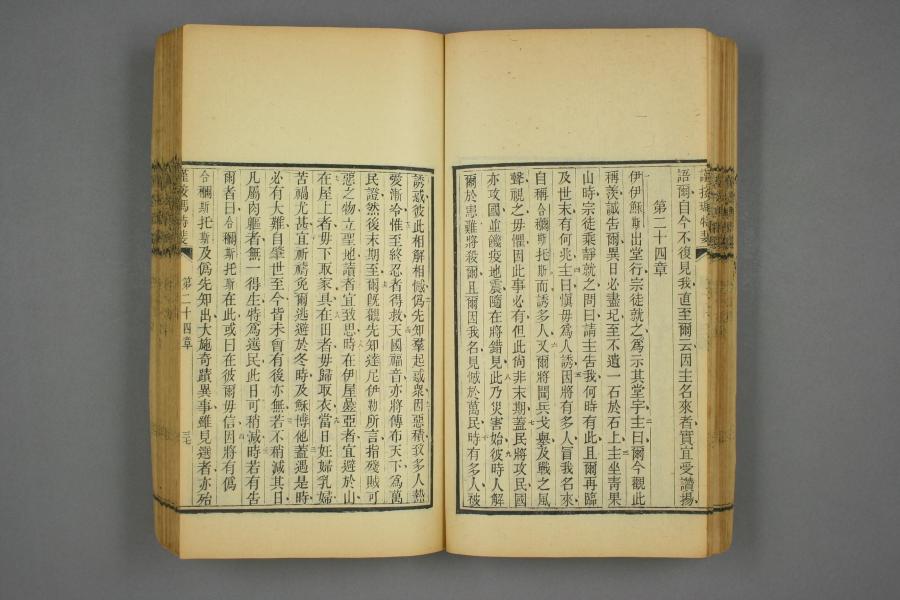 語爾自今不復見我直至爾云因主名來者實宜受讚揚
第二十四章
伊伊穌斯出堂行宗徒就之爲示其堂宇主曰爾今觀此
稱羨誠告爾異日必盡圮至不遺一石於石上主坐青果
山時宗徒乘靜就之問曰請主告我何時有此且爾再臨
及世末有何兆主曰愼毋爲人誘因將有多人冒我名來
自稱合爾斯托斯而誘多人又爾將聞兵戈擧及戰之風
聲視之毋懼因此事必有但此尙非末期蓋民將攻民國
亦攻國並饑疫地震隨在將錯見此乃災害始彼時人解
爾於患難將殺爾且爾因我名見憾於萬民時有多人被
誘惑彼此相解相憾僞先知羣起惑衆因惡積致多人熱
愛漸冷惟至終忍者得救天國福音亦將傳布天下爲萬
民證然後末期至爾旣觀先知達尼伊勒所言指殘賊可
惡之物立聖地讀者宜致思時在伊屋疊亞者宜避於山
在屋上者毋下取家具在田者毋歸取衣當日妊婦乳婦
苦禍尤甚宜祈禱免爾逃避於冬時及穌博他蓋遇是時
必有大難自肇世至今皆未曾有後亦無若不稍減其日
凡屬肉軀者無一得生特爲選民此日可稍減時若有告
爾者曰合爾斯托斯在此或曰在彼爾毋信因將有僞
合爾斯托斯及僞先知出大施奇蹟異事雖見選者亦殆
第二十四章